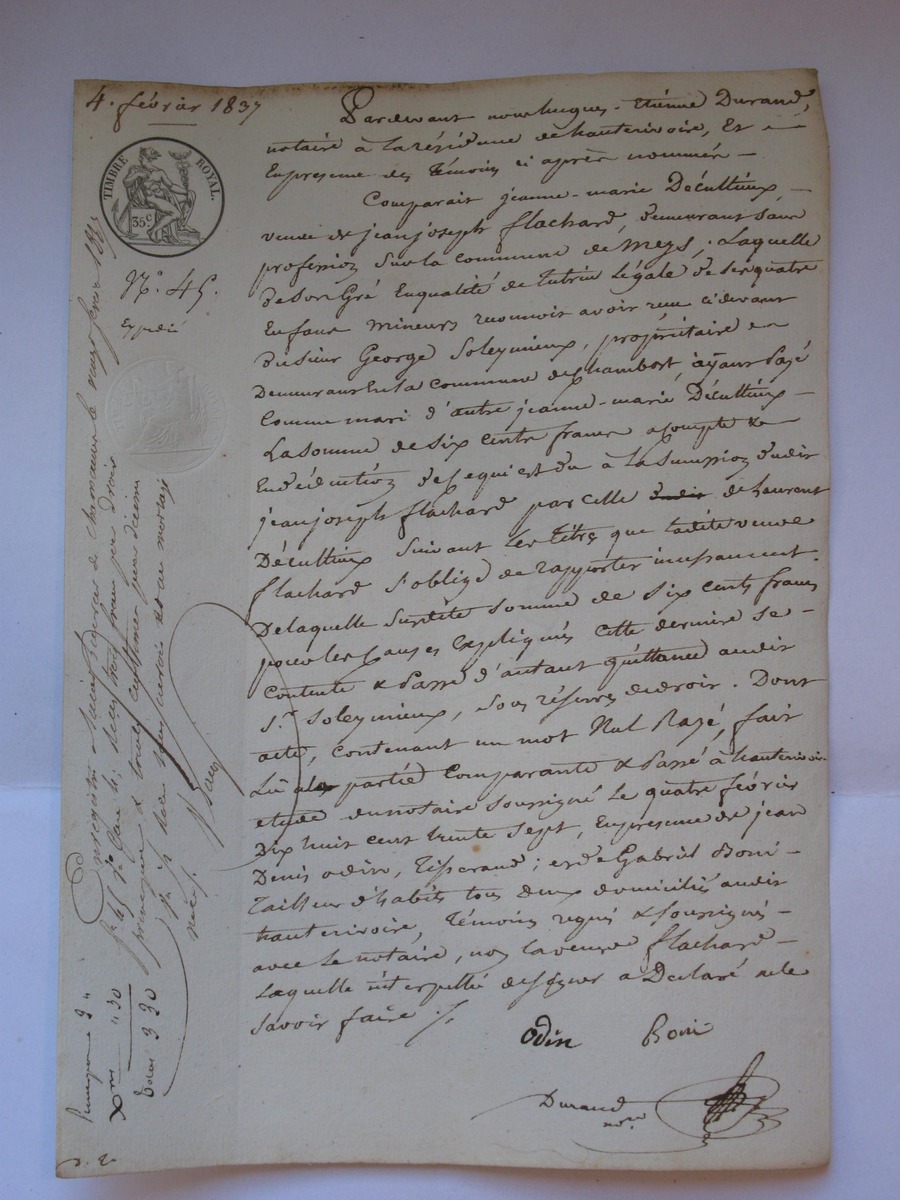 4. février 1837
TIMBRE ROYAL
35.c
N.o 45.
Expédié
Pardevant nous hugues-Etienne Durand,
notaire à la résidence de hauterivoire, Et
En presence des témoins ci après nommés
Comparait jeanne-marie Décultieux
veuve de jean joseph flachard, demeurant sans
profession sur la commune de meys; Laquelle
De son Gré En qualité de tutrice légale de ses quatre
Enfans mineurs reconnoit avoir reçu ci devant
Du sieur George Soleymieux, propriétaire
Demeurant En la commune de chambort, ayant Payé
Comme mari d'autre jeanne-marie Décultieux
La somme de six cents francs acompte &
En déduction de ce qui est du à la succession dudit
jean joseph flachard par celle dudit de laurent
Décultieux suivant les titres que ladite veuve
flachard s'oblige de rapporter incessament.
De laquelle susdite somme de six cents francs
pour les causes Expliquées cette dernière se
contente & Passe d'autant quittance audit
S.r Soleymieux, sous réserves de droit. Dont
acte, contenant un mot Nul Rayé, fait
Lu à la partie Comparante & Passé à hauterivoire
étude du notaire soussigné Le quatre février
Dix huit cent trente sept, En presence de jean
Denis odin, tisserand; et de Gabriel Boni
tailleur d'habits tous deux domiciliés audit
hauterivoire, témoins requis & soussignés
avec le notaire, non la veuve flachard
Laquelle interpellée de signer a Déclaré ne le
savoir faire
odin Boni
Durand
no.re
Enregistré à Saint Laurent de Chamousset le onze février 1837
f.o 45 r.o Case 4. reçu trois francs pour droit
principal & trente centimes pour décime
Principal 3 "
X.me " 30
Total 3 30